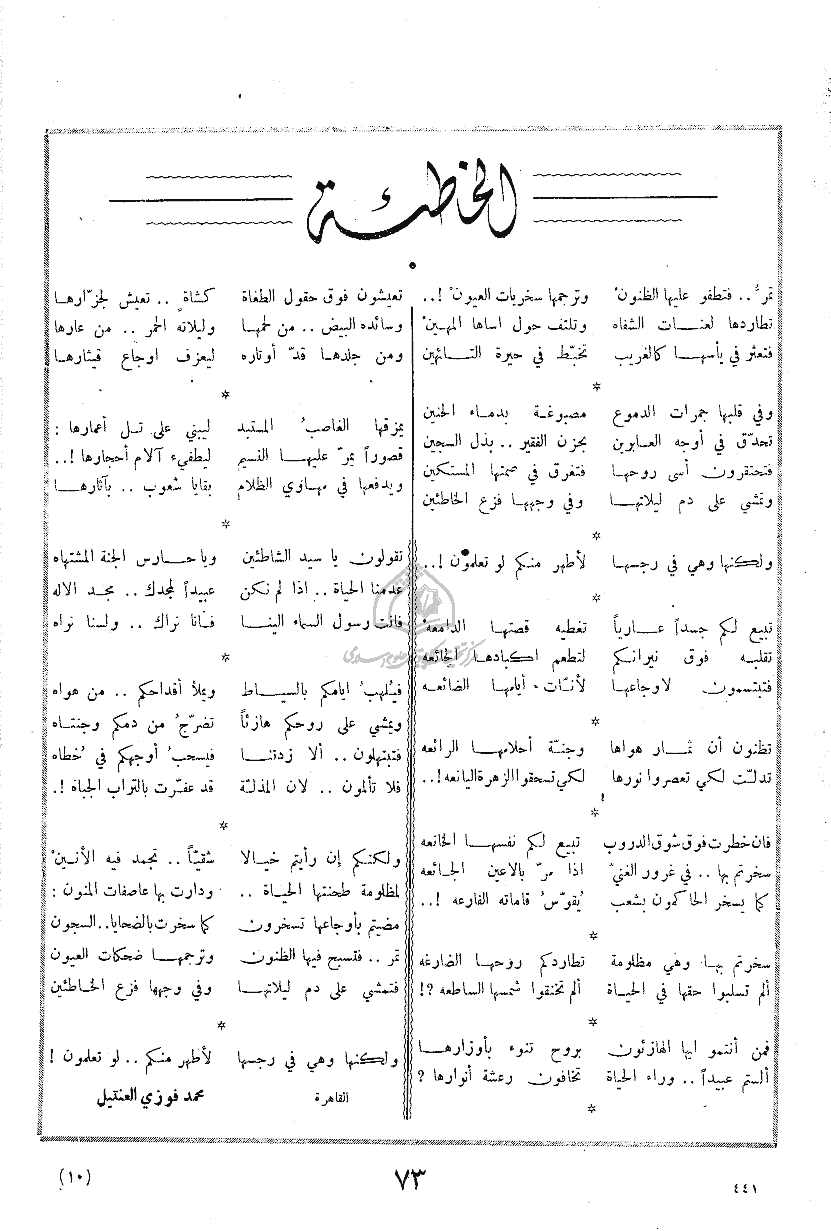 الخاطئة
تمرُّ .. فتطفو عليها الظنونْ وترجمها سخريات العيونْ !..
تطاردها لعنـــات الشفاه وتلتف حول اساها المهينْ
فتعثر في يأسهـا كالغريب تخبّط في حيرة التـــائهين
*
وفي قلبها جمرات الدموع مصبوغـة بدمـاء الحنين
تحدّق في أوجه العـابرين بحزن الفقير .. بذل السجين
فتحتقرون أسى روحهـا فتغرق في صمتها المستكين
وتمشي على دم ليلاتهـا وفي وجهها فزع الخاطئين
*
ولكنها وهي في رجسها لأطهر منكم لو تعلمون !..
*
تبيع لكم جسداً عـــارياً تغطيه قصتهـا الدامعه
تقلبـه فوق نيرانكم لتطعم اكبادها الجائعه
فتبتسمون لاوجاعها لأنـّات أيامها الضائعه
*
تظنون أن ثمـار هواها وجنـّة أحلامهـا الرائعه
تدلـّت لكي تعصروا نورها لكي تسحقوا الزهرة اليانعه !..
*
فان خطرت فوق شوق الدروب تبيع لكم نفسهـا الخانعه
سخرتم بها .. في غرور الغنيّ اذا مرّ بالاعين الجـائعه
كما يسخر الحاكمون بشعب يُقوّس قاماته الفارعه !..
*
سخرتم بهـا وهي مظلومة تطاردكم روحهـا الضارعه
ألم تسلبوا حقها في الحيـاة ألم تخنقوا شمسها الساطعه ?!
*
فمن أنتمو ايها الهازئون بروح تنوء بأوزارهــا
ألستم عبيداً .. وراء الحياة تخافون رعشة أنوارها ?
*
تعيشون فوق حقول الطغاة كشاةٍ .. تعيش لجزّارهـا
وسائده البيض .. من لحمهـا وليلاته الحمر .. من عارها
ومن جلدهـا قدّ أوتاره ليعزف اوجاع قيثارهـا
*
يمزقها الغاصبُ المستبد ليبني على تـل أعمارها :
قصوراً يمرّ عليهـا النسيم ليطفيء آلام أحجارها !..
ويدفعها في مهـاوي الظلام بقايا شعوب .. بآثارهــا
*
تقولون يا سيد الشاطئين ويا حــارس الجنة المشتهاه
عدمنا الحياة .. اذا لم نكن عبيداً لمجدك .. مجـد الاله
فانت رسول السماء الينـا فـانا نراك .. ولسنا نراه
*
فيُلهبُ ايامكم بالسيـاط ويملأ أقداحكم .. من هواه
ويمشي على روحكم هازئاً تضرّجُ من دمكم وجنتـاه
فتبتهلون .. ألا زدتنـــا فيسحبُ أوجهكم في خُطاه
فلا تألمون .. لان المذلـّة قد عفـّرت بالتراب الجباه !.
*
ولكنكم إن رأيتم خيـالا شقيّـاً .. تجمد فيه الأنـينْ
لمظلومة طحنتها الحيـاة .. ودارت بها عاصفات المنون :
مضيتم بأوجاعها تسخرون كما سخرت بالضحايا .. السجون
تمر .. فتسبح فيها الظنون وترجمهـا ضحكات العيون
فتمشي على دم ليلاتهـا وفي وجهها فزع الخاطئين
*
ولكنها وهي في رجسها لأطهر منكم .. لو تعلمون !
القاهرة محمد فوزي العنتيل
٤٤١ ٧٣ (١٠)